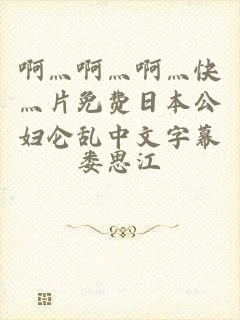 啊灬啊灬啊灬快
灬片免费日本公
妇仑乱中文字幕
娄思江